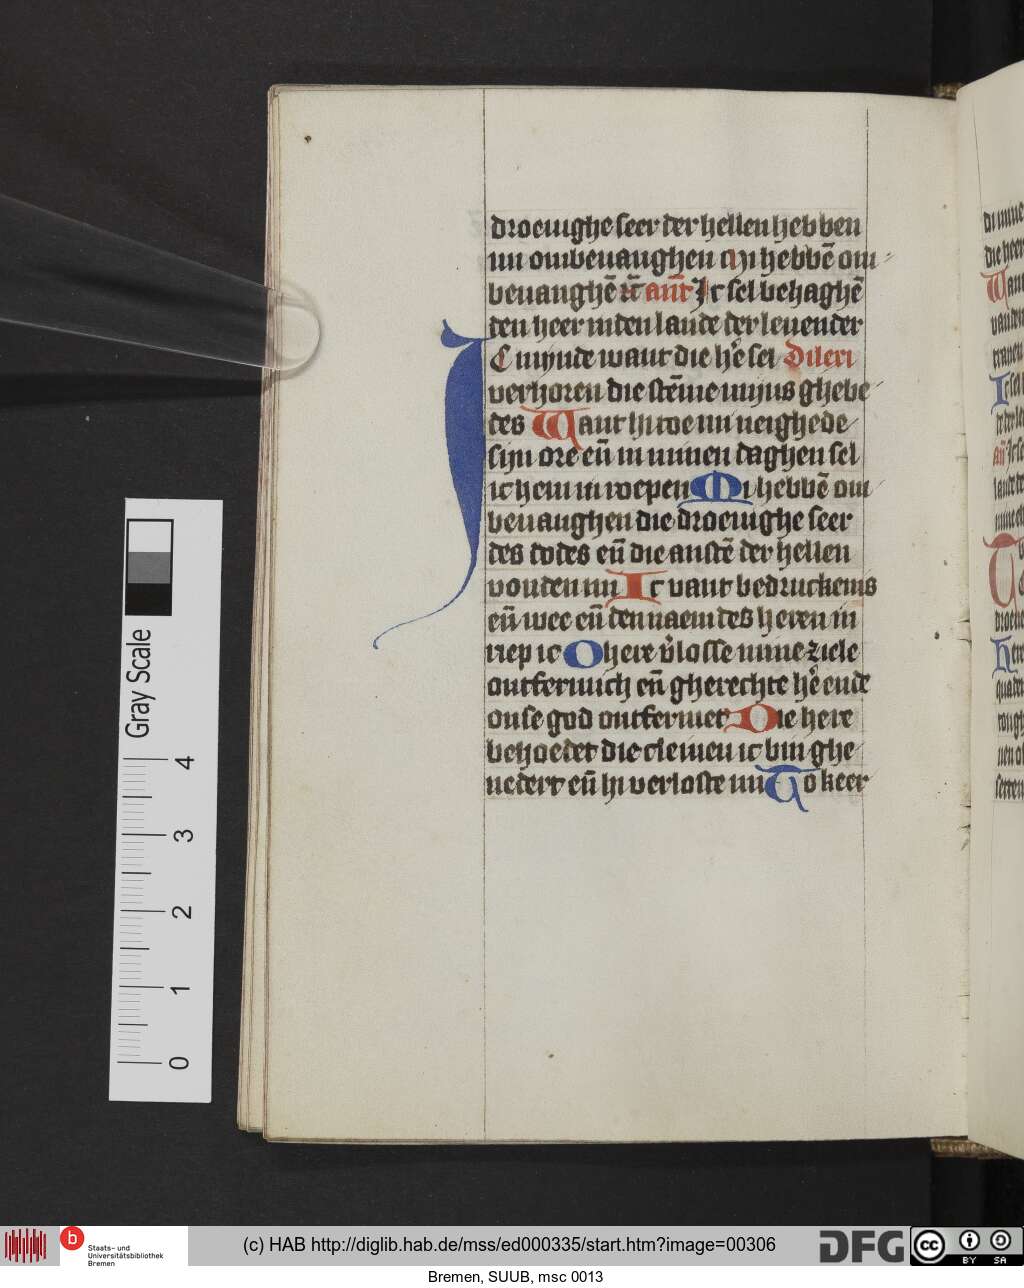 droeuighe seer der hellen hebben
mi ombeuanghen mi hebbē om
beuanghē r̄c anͭ Ic sel behaghē
den heer inden lande der leuender
Ic mynde want die hē sel Dilexi
verhoren die stēme mijns ghebe
des Want hi toe mi neighede
sijn ore eñ in minen daghen sel
ic hem in roepen Mi hebbē om
beuanghen die droeuighe seer
des dodes eñ die anstē der hellen
vonden mi Ic vant bedruckenis
eñ wee eñ den naem des heren in
riep ic O here v̓losse mine ziele
ontfermich eñ gherechte hē ende
onse god ontfermet Die here
behoedet die cleinen ic bin ghe
nedert eñ hi verloste mi To keer
Gray Scale
4
3
2
1
0
b Staats- und
Universitätsbibliothek
Bremen
(c) HAB http://diglib.hab.de/mss/ed000335/start.htm?image=00306
DFG
cc BY SA
Bremen, SUUB, msc 0013